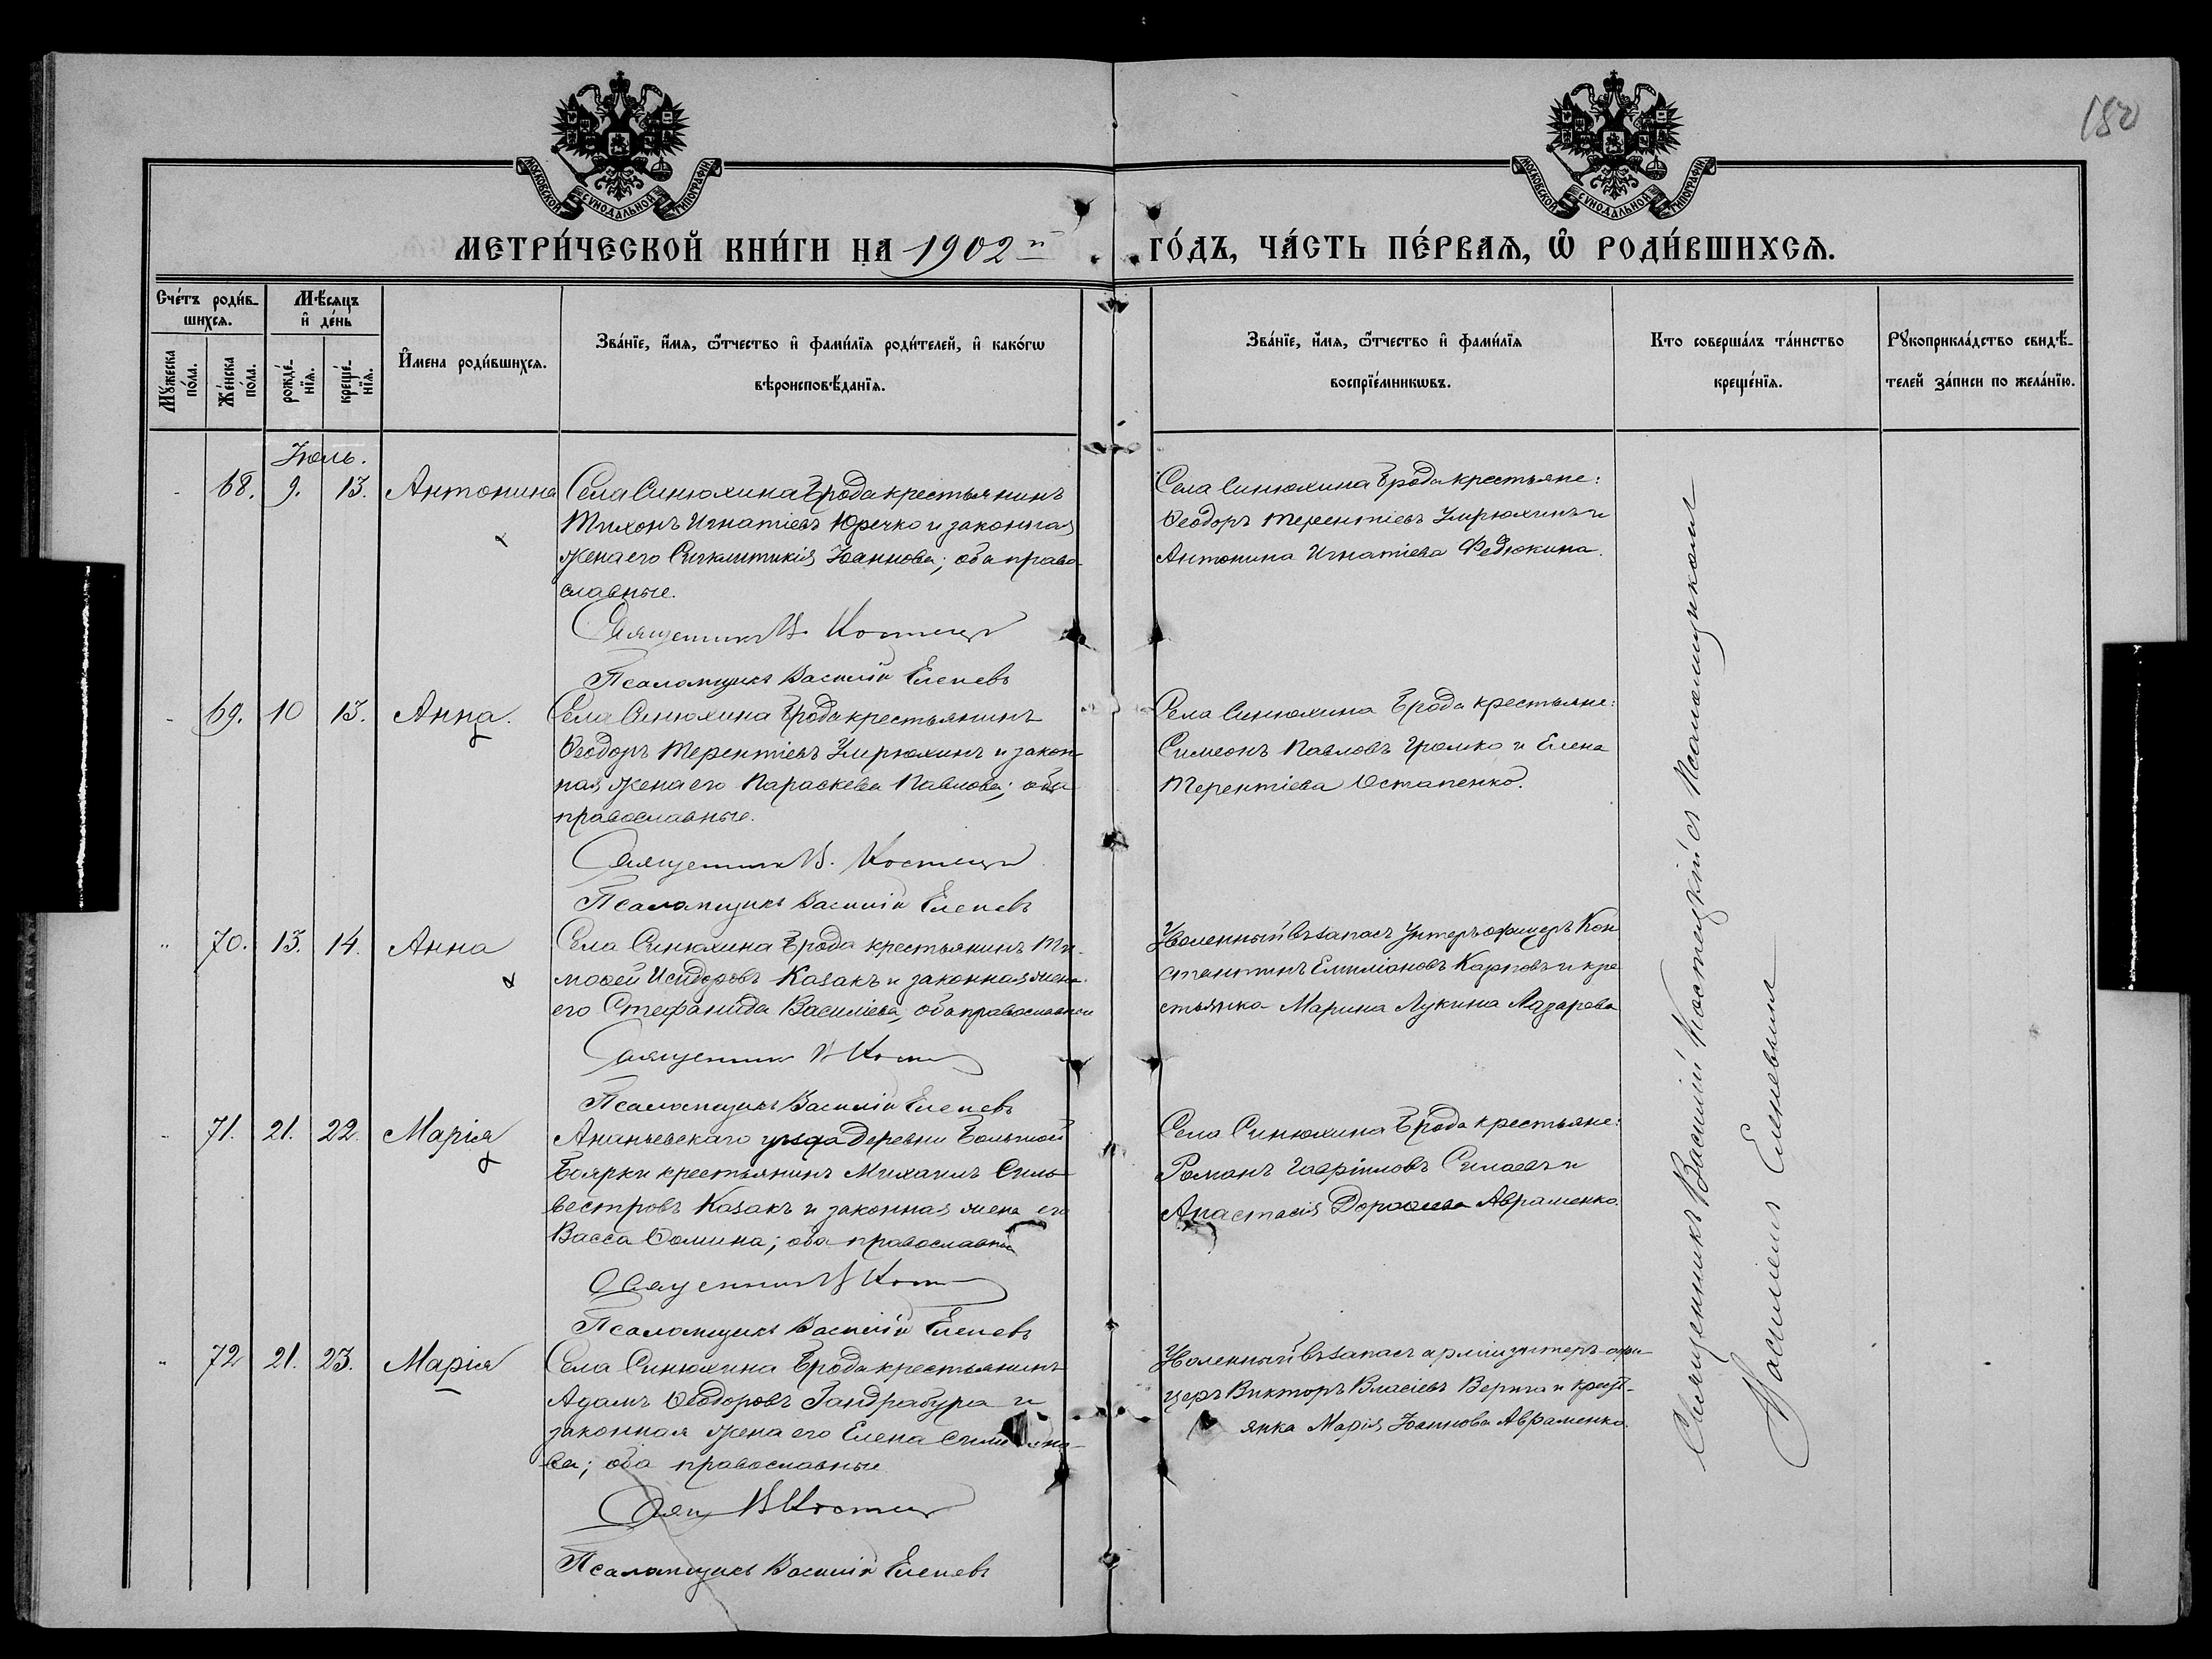 180
МОСКОВСКОЙ СѴНОДАЛЬНОЙ ТИПОГРАФІИ
МОСКОВСКОЙ СѴНОДАЛЬНОЙ ТИПОГРАФІИ
МЕТРИ́ЧЕСКОЙ КНИ́ГИ НА 1902й ГО́ДЪ, ЧА́СТЬ ПЕ́РВАѦ, Ѡ РОДИ́ВШИХСѦ.
Сче́тъ роди́в-
шихсѧ.
Мꙋ́жеска
по́ла.
Же́нска
по́ла.
Мѣ́сѧцъ
и҆ де́нь
рожде́-
нїѧ.
креще́-
нїѧ.
И҆мена роди́вшихсѧ.
Зва́нїе, и҆́мѧ, ѻ҆́тчество и҆ фами́лїѧ роди́телей, и҆ како́гѡ
вѣроисповѣ́данїѧ.
Зва́нїе, и҆́мѧ, ѻ҆́тчество и҆ фами́лїѧ
воспрїе́мникѡвъ.
Кто соверша́лъ та́инство
креще́нїѧ.
Рꙋкоприкла́дство свидѣ́-
телей за́писи по жела́нїю.
Іюль.
68. 9. 13. Антонина
Села Синюхина Брода крестьянинъ
Тихонъ Игнатіевъ Юречко и законная
жена его Сигклитикія Іоаннова; оба право
славные.
Священникъ В. Костецкій
Псаломщикъ Василій Еленевъ
Села Синюхина Брода крестьяне:
Ѳеодоръ Терентіевъ Умрюхинъ и
Антонина Игнатіева Федюкина.
69. 10 13. Анна.
Села Синюхина Брода крестьянинъ
Ѳеодоръ Терентіевъ Умрюхинъ и закон
ная жена его Параскева Павлова; оба
православные.
Священникъ В. Костецкій
Псаломщикъ Василій Еленевъ
Села Синюхина Брода крестьяне:
Симеонъ Павловъ Громко и Елена
Терентіева Остапенко.
„ 70. 13. 14. Анна
Села Синюхина Брода крестьянинъ Ти-
моѳей Исидоровъ Казакъ и законная жена
его Стефанида Василіева, оба православные
Священникъ В Кост
Псаломщикъ Василій Еленевъ
Уволенный въ запасъ унтеръ офицеръ Кон
стантинъ Емиліановъ Карповъ и кре
стьянка Марина Лукина Лазарева
71. 21. 22. Марія
Ананьевскаго уѣзда деревни Большой
Боярки крестьянинъ Михаилъ Силь
вестровъ Казакъ и законная жена его
Васса Ѳомина; оба православные
Священникъ В Кост
Псаломщикъ Василій Еленевъ
Села Синюхина Брода крестьяне:
Романъ Гавріиловъ Силаевъ и
Анастасія Дороѳеева Авраменко.
„ 72 21. 23. Марія
Села Синюхина Брода крестьянинъ
Адамъ Ѳеодоровъ Гандрабура и
законная жена его Елена
ва; оба православные
Свящ В Костец
Псаломщикъ Василій Еленевъ
Уволенный въ запасъ арміи унтеръ-офи-
церъ Викторъ Власіевъ Верига и крест-
янка Марія Іоаннова Авраменко.
Священникъ Василій Костецкій съ Псаломщикомъ
Василіемъ Еленевымъ